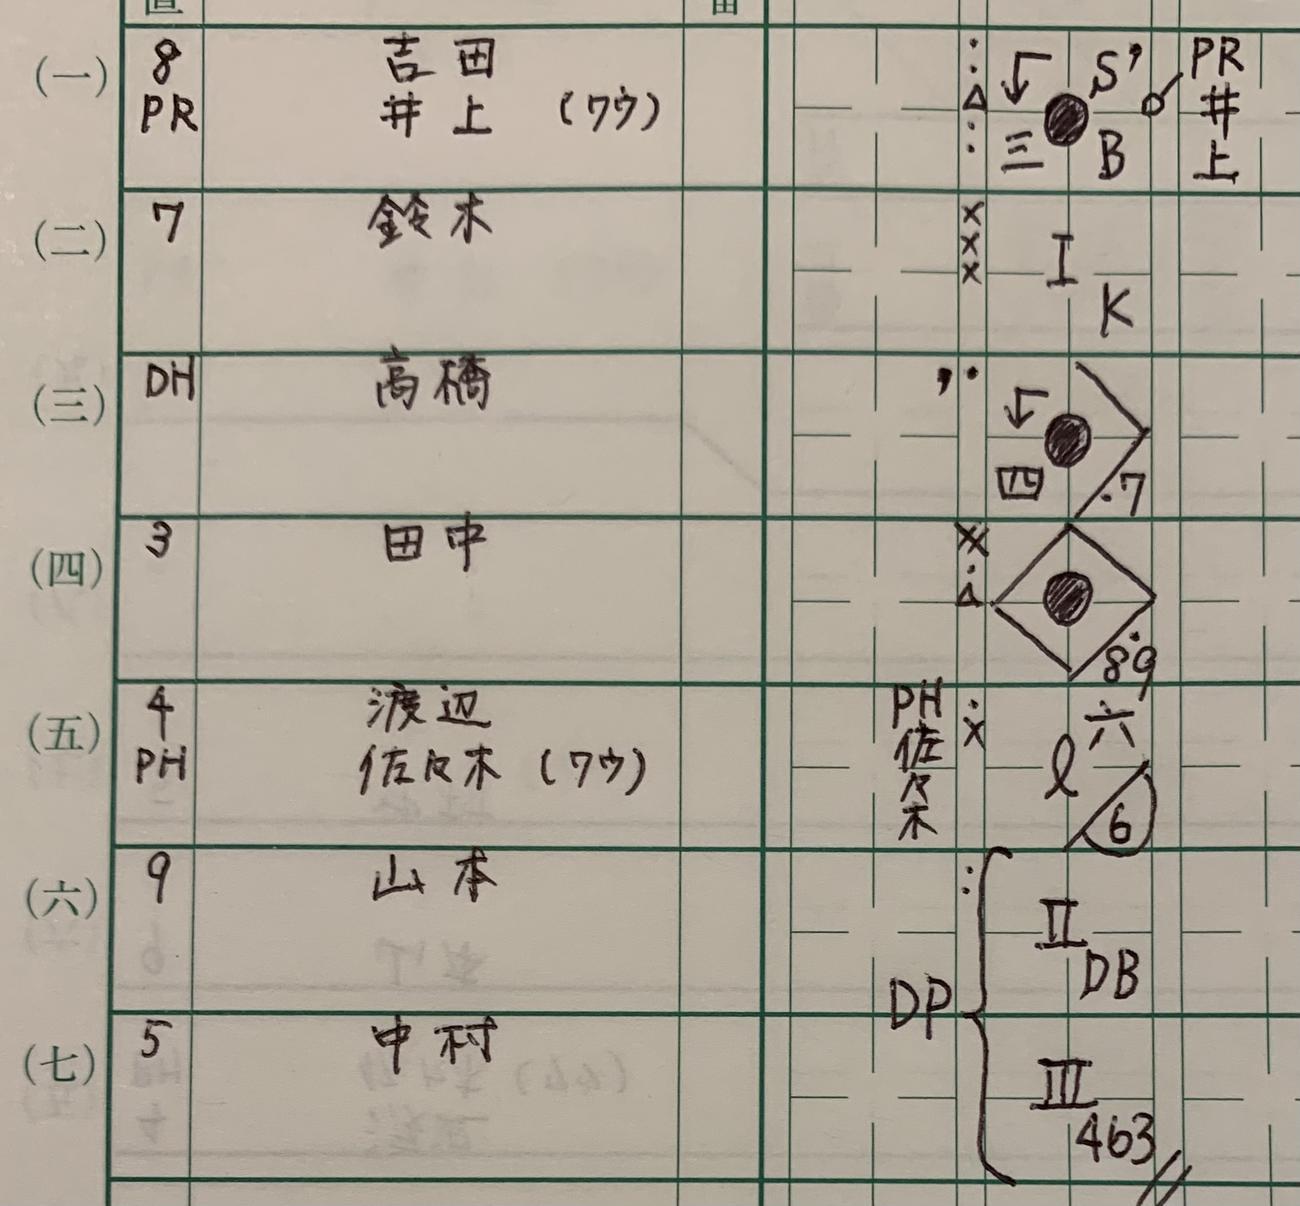 (一) 8 吉田 S' PR
PR 井上 (ワウ) 三 B 井上
(二) 7 鈴木 I
K
(三) DH 高橋
四 ・7
(四) 3 田中
89
(五) 4 渡辺 PH 六
PH 佐々木 (ワウ) 佐々木 l
6
(六) 9 山本 II
DB
DP
(七) 5 中村 III
463